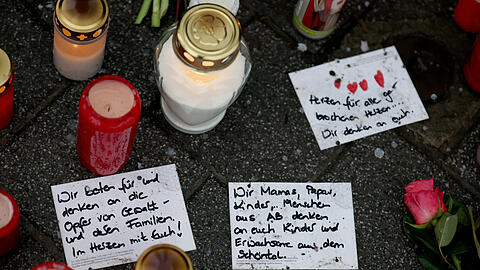 Herzen für alle ge-
brochenen Herzen....
Wir denken an euch.
Wir beten für und
denken an die
Opfer von Gewalt
und deren Familien.
Im Herzen mit Euch!
Wir Mamas, Papas,
Kinder, Menschen
aus AB denken
an euch Kinder und
Erwachsene aus dem
Schöntal.